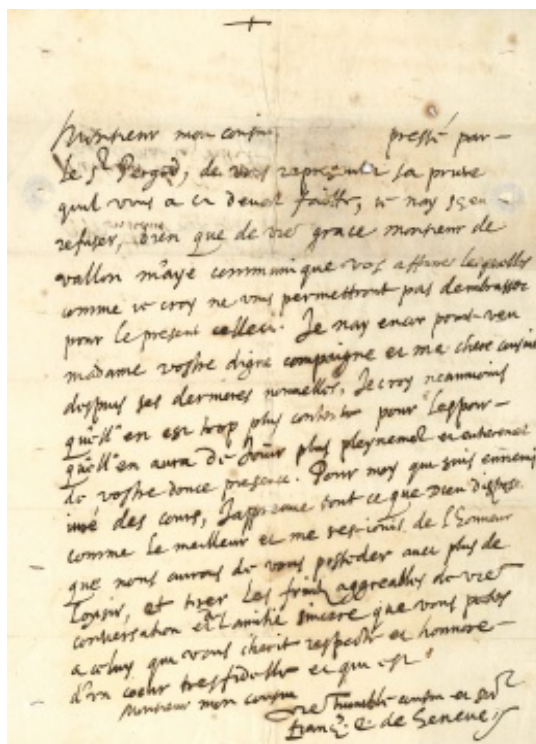 Monsieur mon cousin pressé par
le Sr Pergod, de vous representer la priere
quil vous a cy devant faitte, ie nay sceu
refuser, bien que de vre grace monsieur de
vallon maye communique vos affaires lesquelles
comme ie croy ne vous permettront pas dembrasser
pour le present celleci. Je nay encor point veu
madame vostre digne compaigne et ma chere cousine
despuis ses dernieres nouvelles, Je croy neanmoins
quell' en est trop plus contente pour lespoir
quell' en aura de Jouir plus pleynement et entierement
de vostre douce presence. Pour moy qui suis ennemi
iuré des cours, Jappreuve tout ce que Dieu dispose
comme le meilleur et me res-iouis de lhonneur
que nous aurons de vous posseder avec plus de
loysir, et tirer les fruitz aggreables de vre
conversation et lamitié sincere que vous portes
a celuy qui vous cherit respecte et honnore
d'un coeur tresfidelle et qui est
Monsieur mon cousin
vre humble cousin et
franç. E. de Geneve